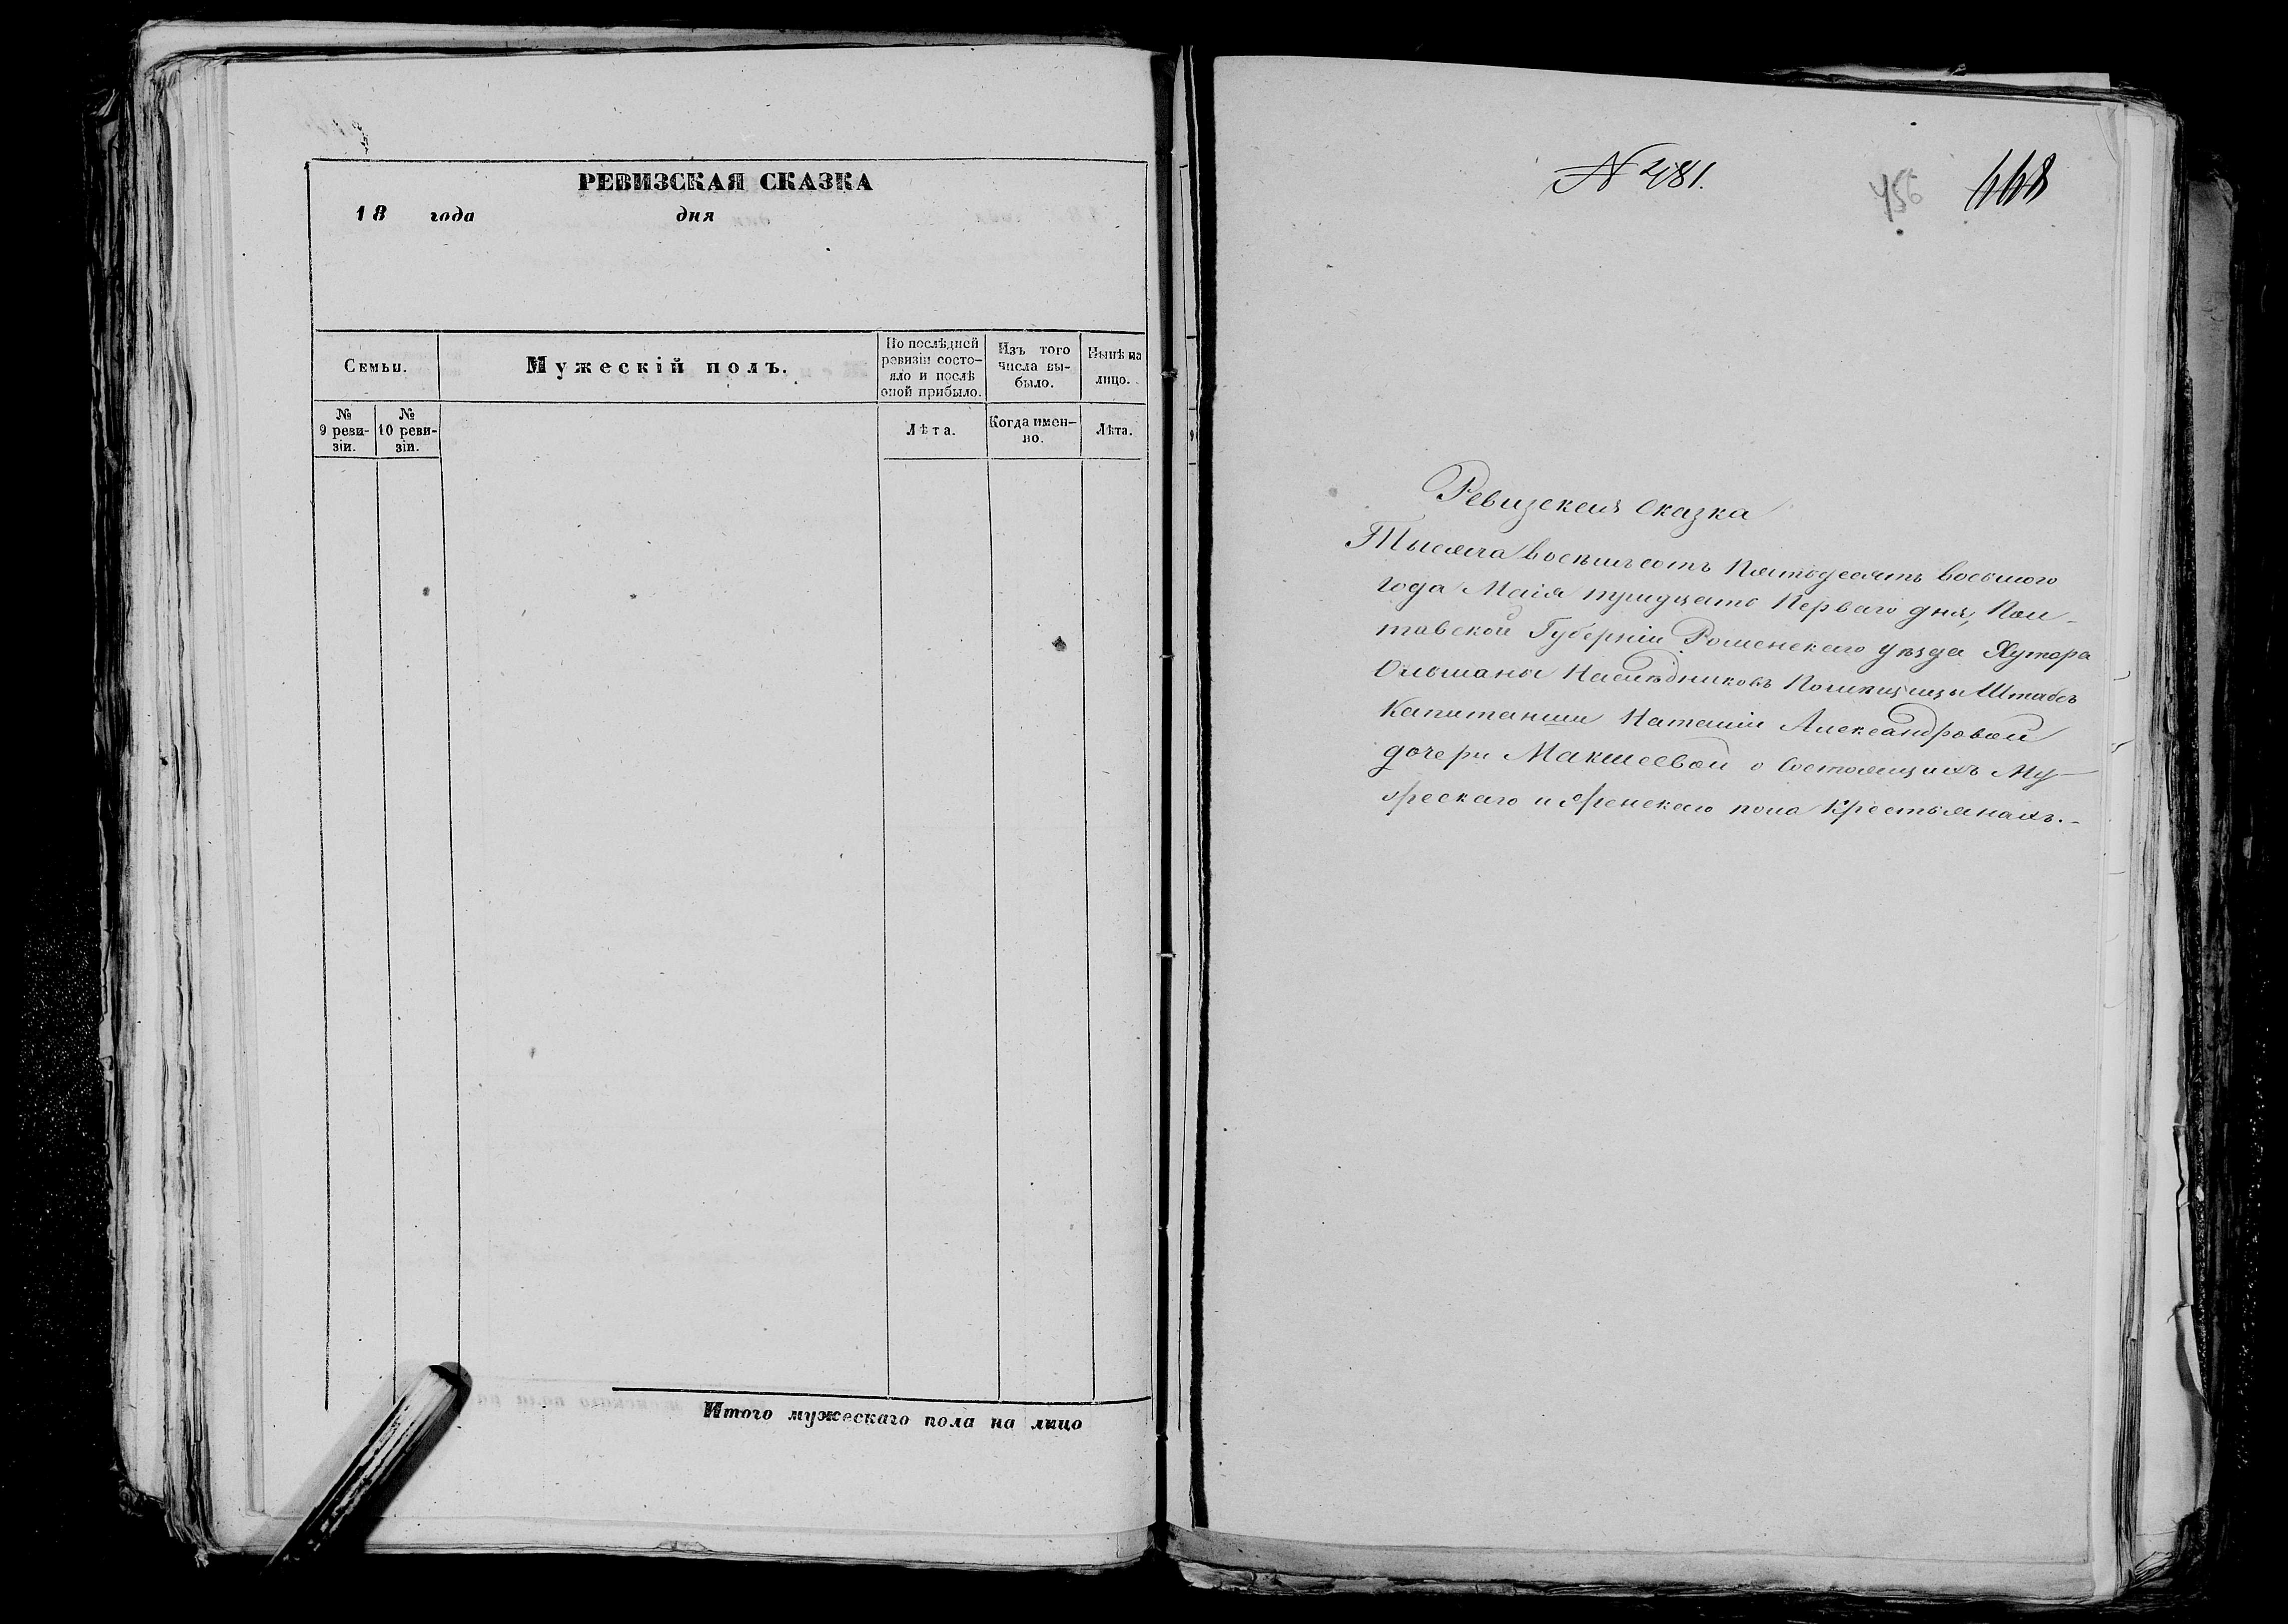 РЕВИЗСКАЯ СКАЗКА
18 года дня
Семьи.
Мужескій полъ.
По послѣдней ревизіи состо-
яло и послѣ
оной прибыло.
Изъ того
числа вы-
было.
Нынѣ на
лицо.
№
9 реви-
зіи.
№
10 реви-
зіи.
Лѣта.
Когда имен-
но.
Лѣта.
Итого мужескаго пола на лицо
N 481.
456
Ревизская сказка
Тысяча восемьсотъ Пятьдесятъ восьмого
года Маія тридцать Перваго дня, Пол-
тавской Губерніи Роменскаго уѣзда Хутора
Ольшаны Наслѣдниковъ Помѣщицы Штабсъ
Капитанши Наталіи Александровой
дочери Макшеевой о Состоящихъ Му-
жескаго и женскаго пола Крестьянахъ.-